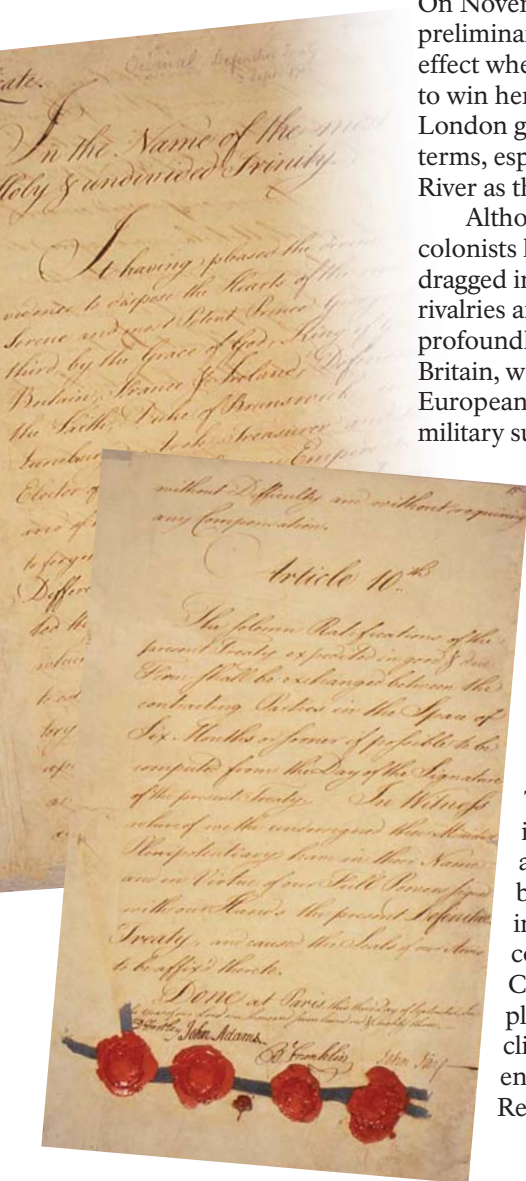 On Novem
preliminar
effect whe
to win her
London g
terms, esp
River as th
Altho
colonists l
dragged in
rivalries a
profoundl
Britain, w
European
military su
T
i
a
b
in
co
C
pl
cli
en
Re
Original Definitive Treaty
3 Sept.
In the Name of the most
Holy & undivided Trinity.
It having pleased the divine
to dispose the Hearts of the
Serene and most Potent Prince George
third, by the Grace of God, King of
Britain, France & Ireland, Defen
the Faith, Duke of Brunswick
Treasurer and
Empire
Elector of
and of
to forget
Differe
ted th
without Difficulty and without requiring
any Compensation.
Article 10th
The solemn Ratifications of the
present Treaty expedited in good & due
Form shall be exchanged between the
contracting Parties in the Space of
Six Months or sooner if possible to be
computed from the Day of the Signature
of the present Treaty. In Witness
whereof we the undersigned their Ministers
Plenipotentiary have in their Name
and in Virtue of our Full Powers signed
with our Hands the present Definitive
Treaty, and caused the Seals of our Arms
to be affix'd thereto.
Done at Paris, this third Day of September, In
the Year of our Lord one thousand seven hundred & eighty three.
D Hartley John Adams B Franklin John Jay